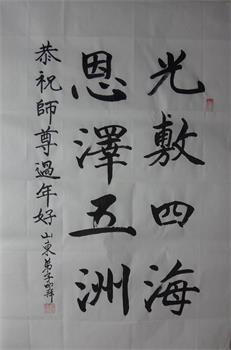 光敷四海
恩澤五洲
恭祝師尊過年好
山東弟子 拜